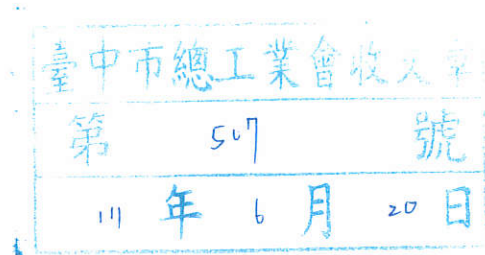 臺中市總工業會收文章
第 507 號
111 年 6 月 20 日